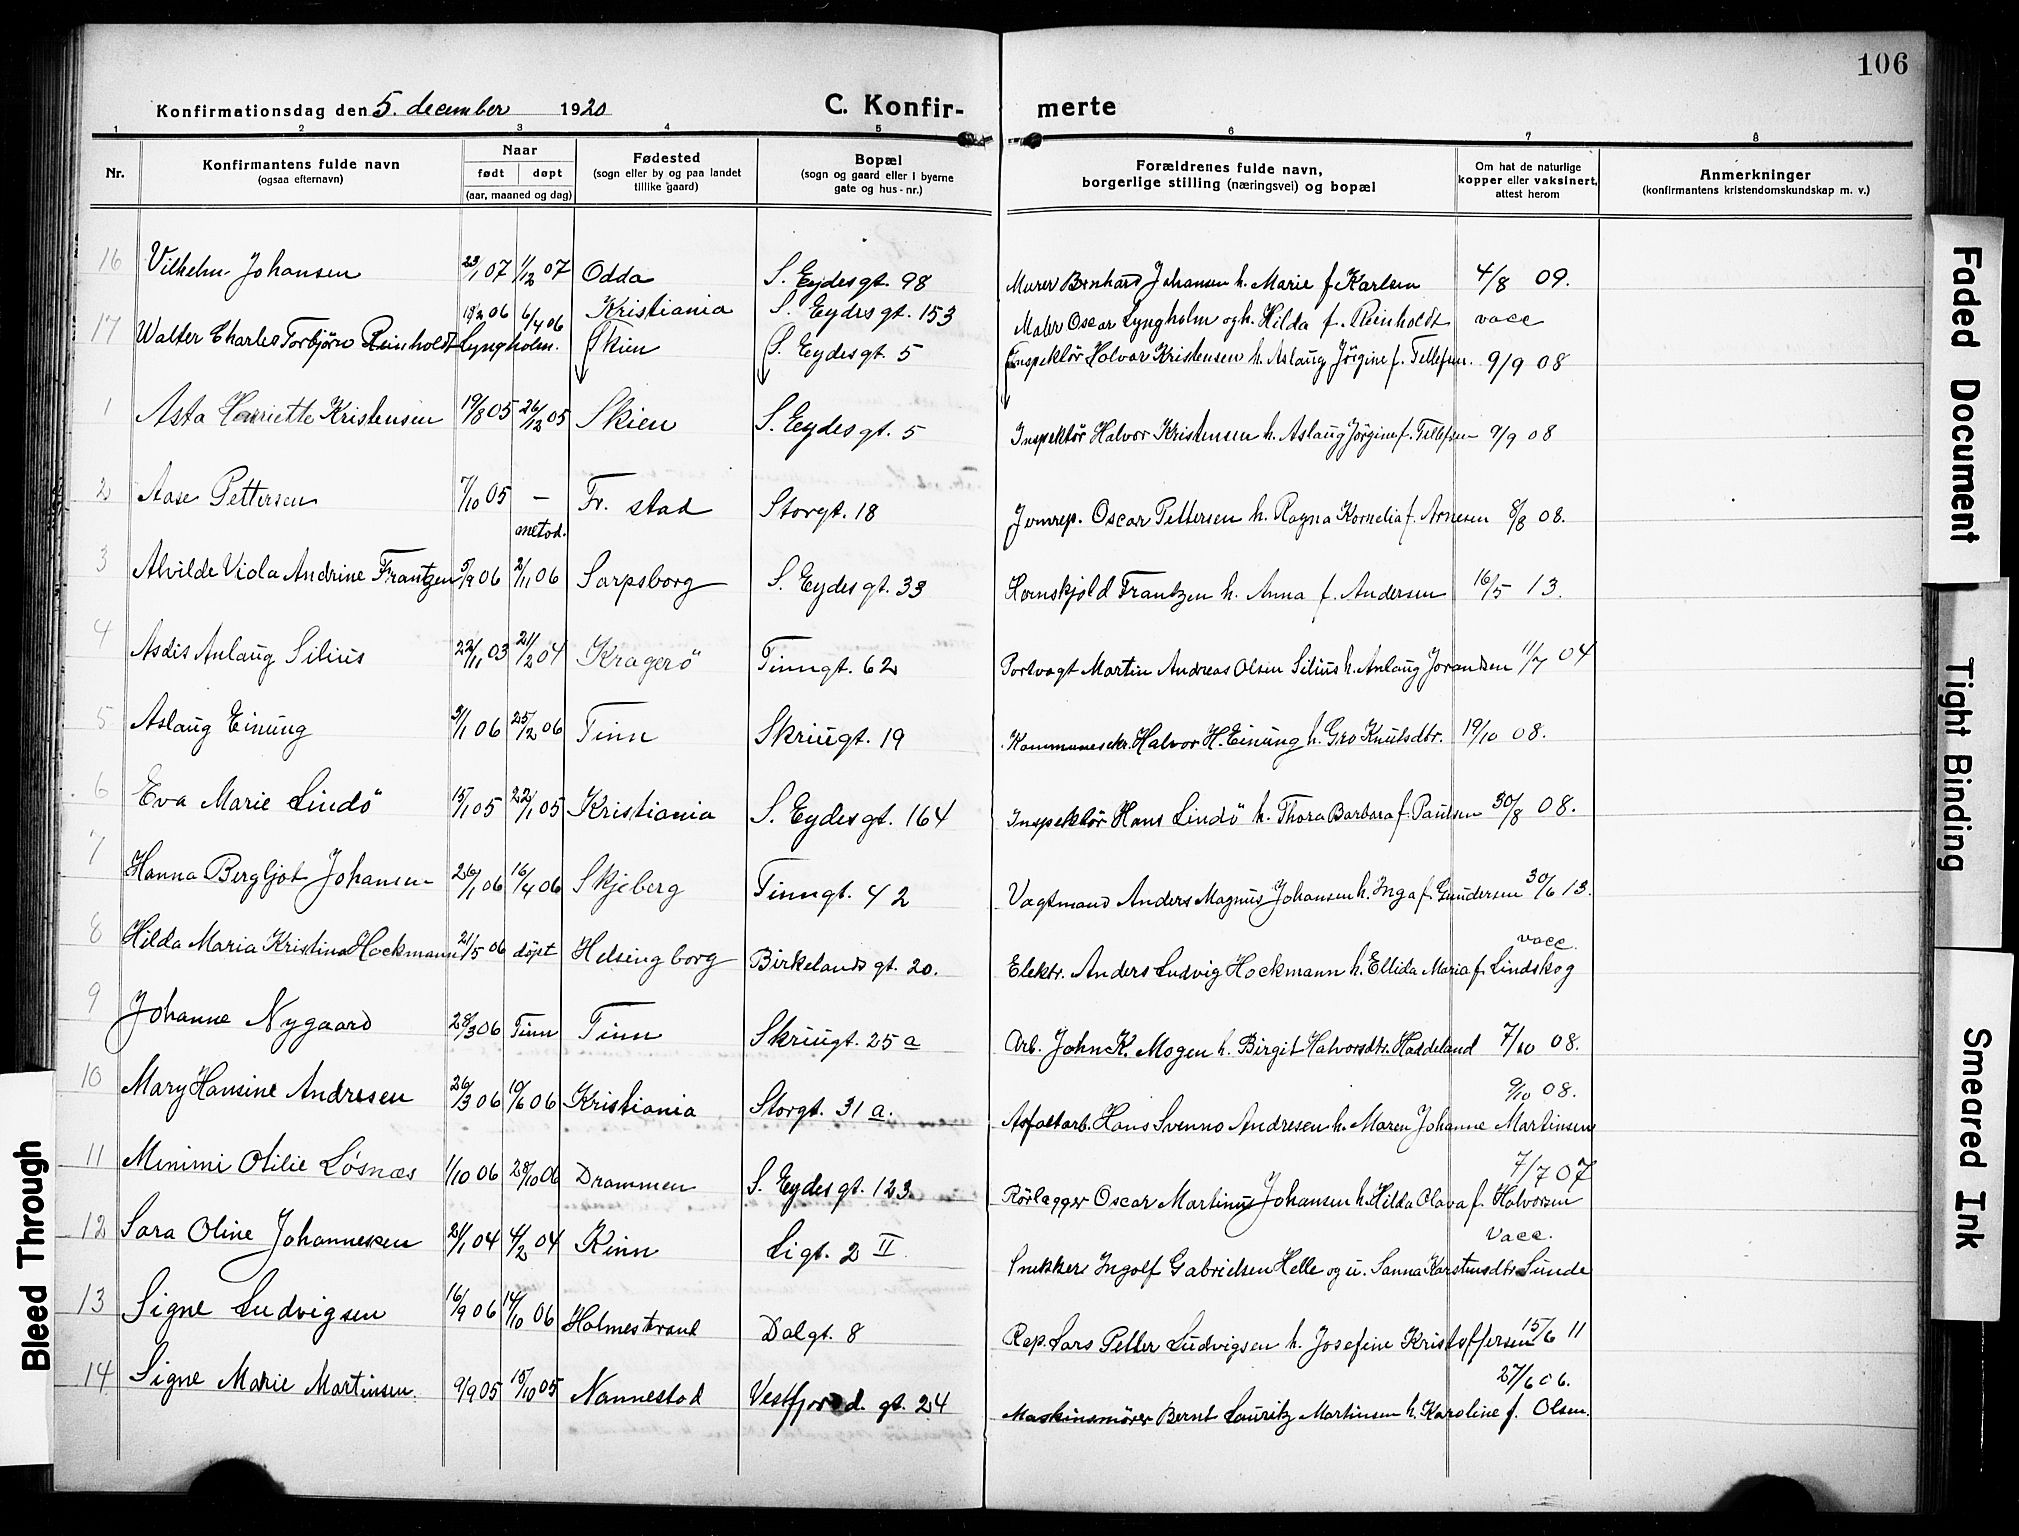 106
Konfirmationsdag den 5. december 1920 C. Konfir- merte
1 2 3 4 5 6 7 8
Nr. Konfirmantens fulde navn (ogsaa efternavn) Naar født døpt (aar, maaned og dag) Fødested (sogn eller by og paa landet tillike gaard) Bopæl (sogn og gaard eller i byerne gate og hus-nr.) Forældrenes fulde navn, borgerlige stilling (næringsvei) og bopæl Om hat de naturlige kopper eller vaksinert, attest herom Anmerkninger (konfirmantens kristendomskundskap m. v.)
16 Vilhelm Johansen 23/1 07 1/12 07 Odda S. Eydesgt. 98 Murer Bernhard Johansen h. Marie f. Karlsen 4/8 09.
17 Walter Charles Torbjørn Reinholdt Lyngholm. 18/2 06 6/4 06 Kristiania S. Eydesgt. 153 Maler Oscar Lyngholm og h. Hilda f. Reinholdt vacc
Skien S. Eydesgt. 5 Inspektör Halvor Kristensen h. Aslaug Jörgine f. Tellefsen. 9/9 08
1 Asta Harriette Kristensen 19/8 05 26/12 05 Skien S. Eydesgt. 5 Inspektör Halvor Kristensen h. Aslaug Jörgine f. Tellefsen 9/9 08
2 Aase Pettersen 7/10 05 – metod. Fr. stad Storgt. 18 Jernrep. Oscar Pettersen h. Ragna Kornelia f. Arnesen 8/8 08.
3 Alvilde Viola Andrine Frantzen 5/9 06 2/11 06 Sarpsborg S. Eydesgt. 33 Hornskjold Frantzen h. Anna f. Andersen 16/5 13.
4 Asdis Anlaug Silius 22/11 03 21/2 04 Kragerö Tinngt. 62 Portvagt Martin Andreas Olsen Silius h. Anlaug Jorandsen 11/7 04
5 Aslaug Einung 3/1 06 25/2 06 Tinn Skriugt. 19 Kommunesekr. Halvor H. Einung h. Gro Knutsdtr. 19/10 08.
6 Eva Marie Lindö 15/1 05 22/1 05 Kristiania S. Eydesgt. 164 Inspektör Hans Lindö h. Thora Barbara f. Paulsen 30/8 08.
7 Hanna Bergljot Johansen 26/1 06 16/4 06 Skjeberg Tinngt. 42 Vagtmand Anders Magnus Johansen h. Inga f. Gundersen 30/6 13.
8 Hilda Maria Kristina Hockmann 21/5 06 döpt Helsingborg Birkelands gt. 20. Elektr. Anders Ludvig Hockmann h. Ellida Maria f. Lindskog vacc.
9 Johanne Nygaard 28/3 06 Tinn Tinn Skriugt. 25 a Arb. John K. Mogen h. Birgit Halvorsdtr. Haddeland 7/10 08.
10 Mary Hansine Andresen 26/3 06 10/6 06 Kristiania Storgt. 31 a. Asfaltarb. Hans Svenno Andresen h. Maren Johanne Martinsen 9/10 08.
11 Mimmi Otilie Løsnæs 1/10 06 28/10 06 Drammen S. Eydesgt. 123 Rörlægger Oscar Martinus Johansen h. Hilda Olava f. Halvorsen 7/7 07
12 Sara Oline Johannesen 21/1 04 4/2 04 Kinn Ligt. 2 II Snekker Ingolf Gabrielsen Helle og u. Sanna Karstensdtr. Sunde vacc.
13 Signe Ludvigsen 16/9 06 14/10 06 Holmestrand Dalgt. 8 Rep. Lars Petter Ludvigsen h. Josefine Kristoffersen 15/6 11
14 Signe Marie Martinsen. 9/9 05 15/10 05 Nannestad Vestfjordd. gt. 24 Maskinsmörer Bernt Lauritz Martinsen h. Karoline f. Olsen. 27/6 06.
Faded Document
Tight Binding
Smeared Ink
Bleed Through